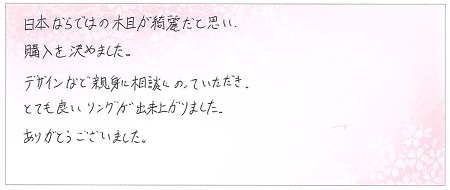 日本ならではの木目が綺麗だと思い、
購入を決めました。
デザインなど親身に相談にのっていただき、
とても良いリングが出来上がりました。
ありがとうございました。